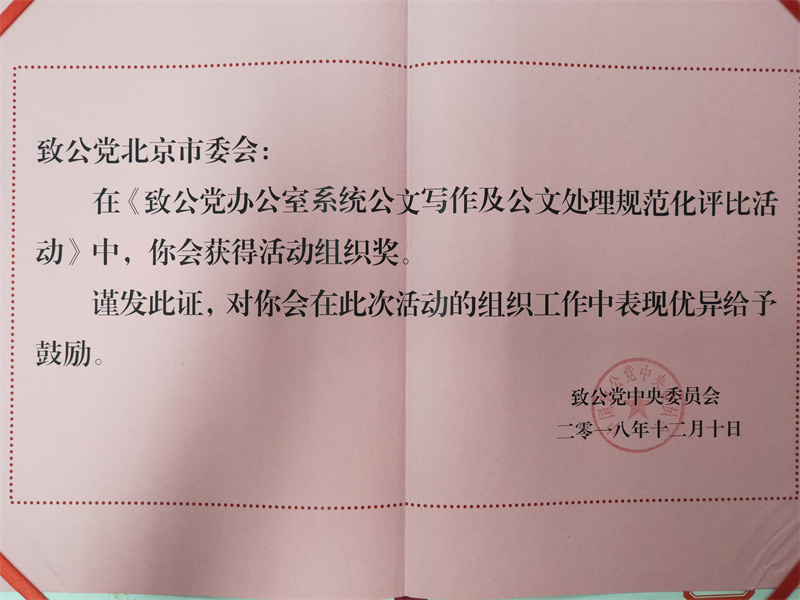 致公党北京市委会：
在《致公党办公室系统公文写作及公文处理规范化评比活
动》中，你会获得活动组织奖。
谨发此证，对你会在此次活动的组织工作中表现优异给予
鼓励。
致公党中央委员会
二零一八年十二月十日